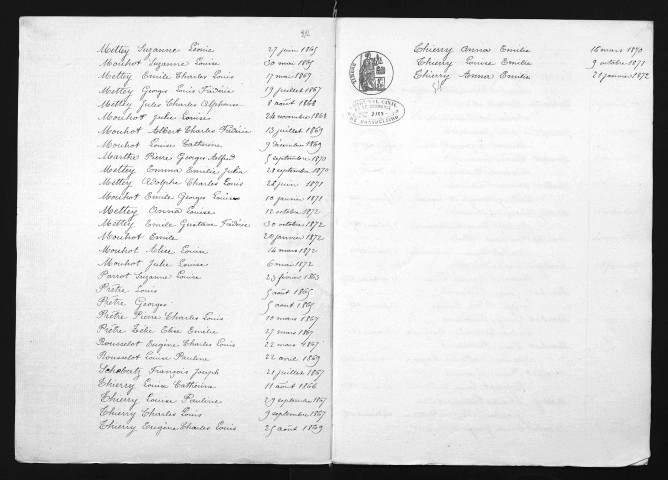 Mettey Suzanne Léonie 27 juin 1865
Mouhot Suzanne Louise 30 mai 1865
Mettey Emile Charles Louis 17 mai 1867
Mettey George Louis Frédéric 19 juillet 1867
Mettey Jules Charles Alphonse 8 août 1868
Mouhot Julie Louise 24 novembre 1868
Mouhot Albert Charles Frédéric 13 juillet 1869
Mouhot Louise Catherine 9 décembre 1869
Marthe Pierre Georges Alfred 5 septembre 1870
Mettey Emma Emelie Julia 28 septembre 1870
Mettey Adolphe Charles Louis 28 juin 1871
Mouhot Emile Georges Louis 10 janvier 1871
Mettey Anna Louise 12 octobre 1872
Mettey Emile Gustave Frédéric 30 octobre 1872
Mouhot Emile 20 janvier 1872
Mouhot Alice Louise 14 mars 1872
Mouhot Julie Louise 6 mai 1872
Parrot Suzanne Louise 23 février 1863
Prêtre Louis 5 août 1865
Prêtre Georges 5 août 1865
Prêtre Pierre Charles Louis 10 mars 1867
Prêtre Zélie Elise Emilie 27 mars 1867
Rousselot Eugène Charles Louis 22 mars 1867
Rousselot Louise Pauline 22 avril 1869
François Joseph 21 juillet 1867
Thierry Louise Catherine 11 août 1866
Thierry Louise Pauline 29 septembre 1867
Thierry Charles Louis 9 septembre 1867
Thierry Eugène Charles Louis 25 août 1869
Thierry Anna Emilie 16 mars 1870
Thierry Louise Emilie 9 octobre 1871
Thierry Anna Emilie 21 janvier 1872
TRIBUNAL CIVIL
DE MONTBÉLIARD